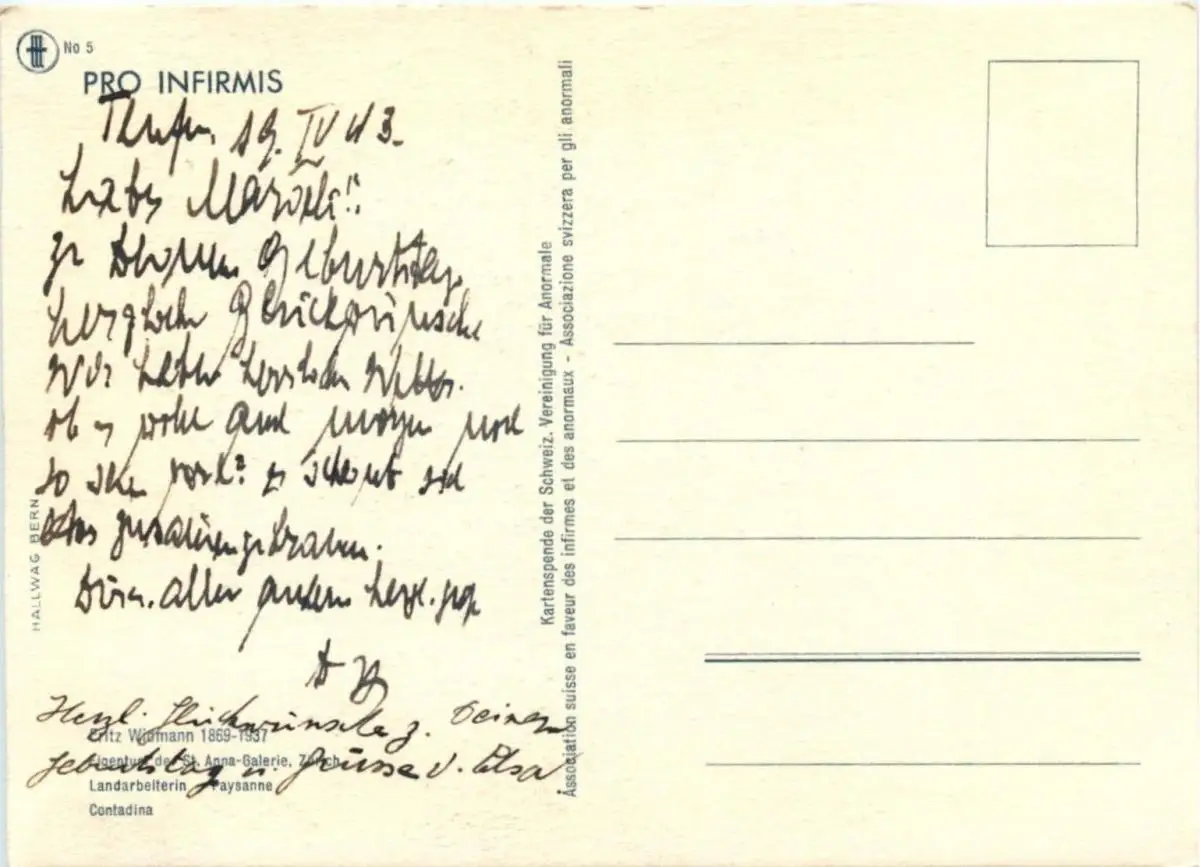 No 5
PRO INFIRMIS
19. IV 43.
Liebes
zu Deinem Geburtstage
herzliche Glückwünsche
Wir haben herrliches Wetter.
ob es wohl auch morgen noch
so schön ? es scheint sich
etwas
allen andern herzl.
Herzl. Glückwünsche z. Deinem
Geburtstag u. Grüsse v. Elsa
Fritz Widmann 1869-1937
Eigentum der St. Anna-Galerie, Zürich
Landarbeiterin Paysanne
Contadina
HALLWAG BERN
Kartenspende der Schweiz. Vereinigung für Anormale
Association suisse en faveur des infirmes et des anormaux - Associazione svizzera per gli anormali